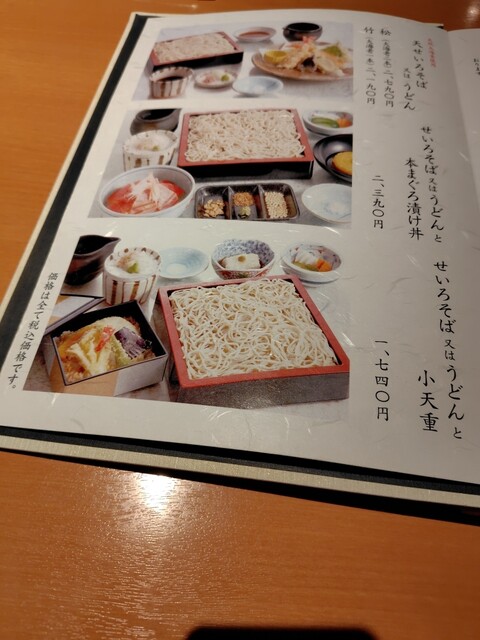 天せいろそば
又はうどん
松
二、七九〇円
竹
二、一九〇円
せいろそば又はうどんと
本まぐろ漬け丼
二、三九〇円
せいろそば又はうどんと
小天重
一、七四〇円
価格は全て税込価格です。